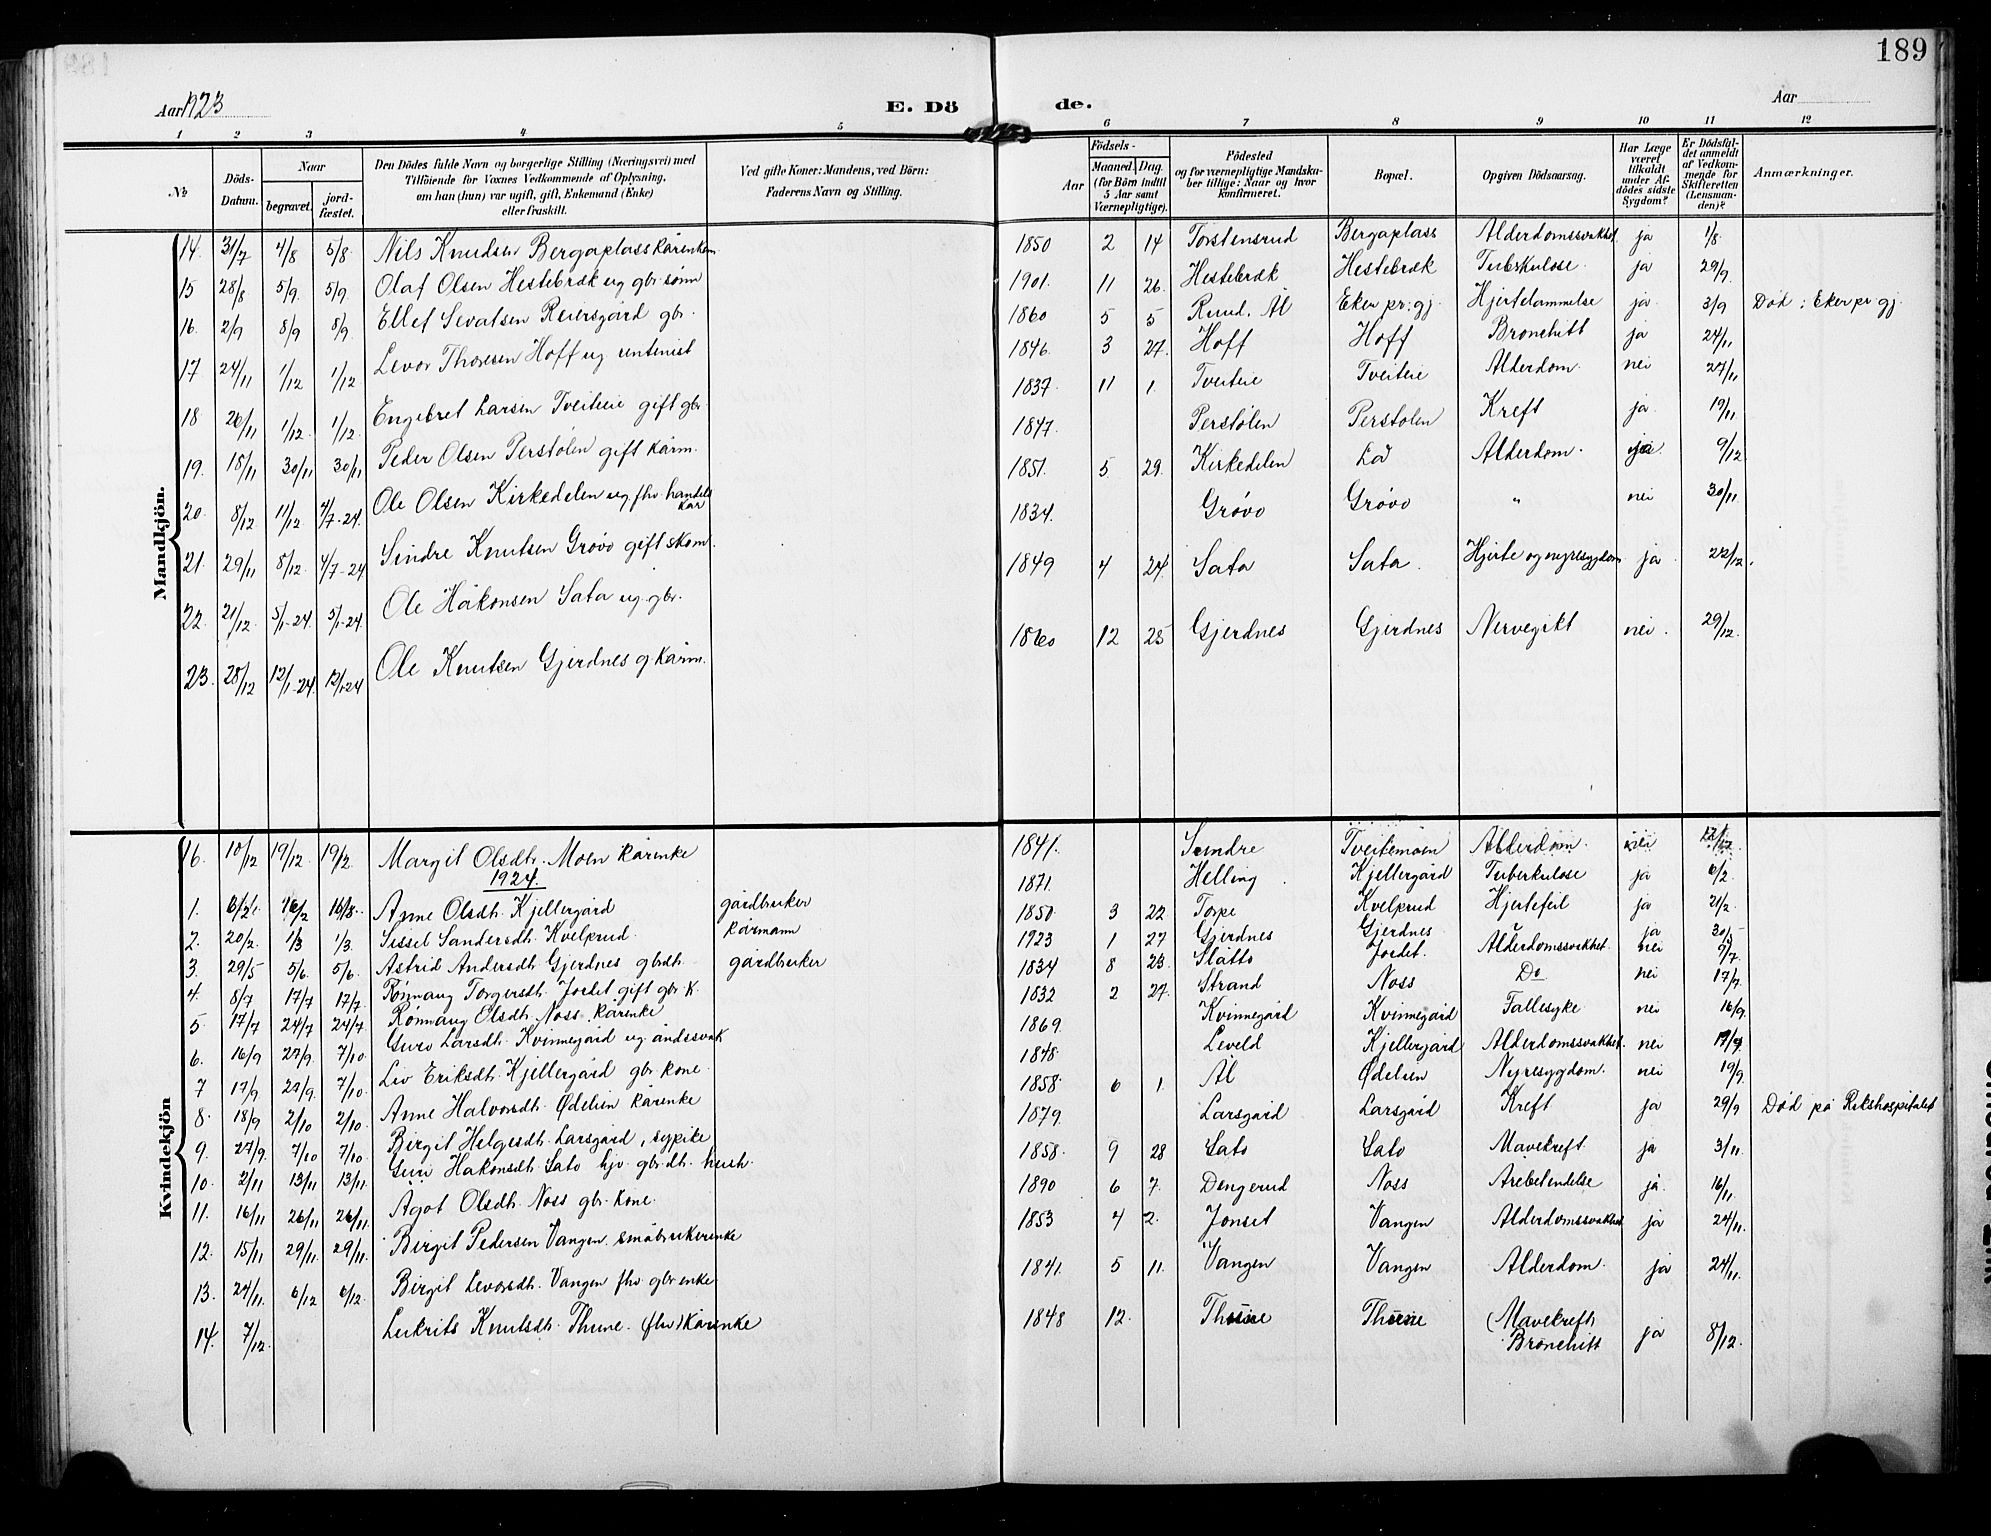 189
Aar 1923
E. Dö de.
Aar
1 2 3 4 5 6 7 8 9 10 11 12
№
Döds-Datum.
Naar
begravet.
jord-fæstet.
Den Dödes fulde Navn og borgerlige Stilling (Næringsvei) med
Tilföiende for Voxnes Vedkommende af Oplysning,
om han (hun) var ugift, gift, Enkemand (Enke)
eller fraskilt.
Ved gifte Koner: Mandens, ved Börn:
Faderens Navn og Stilling.
Födsels-
Aar
Maaned Dag
(for Börn indtil
5 Aar samt
Værnepligtige).
Födested
og for værnepligtige Mandska-
ber tillige: Naar og hvor
konfirmeret.
Bopæl.
Opgiven Dödsaarsag.
Har Læge
været
tilkaldt
under Af-
dödes sidste
Sygdom?
Er Dödsfal-
det anmeldt
af Vedkom-
mende for
Skifteretten
(Lensman-
den)?
Anmærkninger.
Mandkjön.
14. 31/7 4/8 5/8. Nils Knudsen Bergaplass kårenkem 1850 2 14 Torstensrud Bergaplass Alderdomssvakhet ja 1/8.
15 28/8 5/9. 5/9. Olaf Olsen Hestebræk ug gbr. sønn 1901. 11 26. Hestebræk Hestebræk Tuberkulose. ja 29/9.
16. 2/9 8/9 8/9. Ellef Sevatsen Reiersgård gbr. 1860 5 5 Ruud. Ål Eker pr. gj. Hjertelammelse ja. 3/9 Død i Eker pr gj.
17 24/11 1/12 1/12 Levor Thoresen Hoff ug rentenist 1846. 3 27. Hoff Hoff Bronchitt ja 24/11
18 26/11 1/12. 1/12. Engebret Larsen Tveiteie gift gbr. 1837 11 1. Tveiteie Tveiteie Alderdom. nei 27/11
19. 18/11 30/11 30/11 Peder Olsen Perstølen gift kårm. 1847. Perstølen Perstølen Kreft ja. 19/11
20. 8/12 11/12 4/7-24. Ole Olsen Kirkedelen ug fhv. handels
kar 1851. 5 29. Kirkedelen Lo Alderdom. ja. 9/12
21. 29/11 8/12. 4/7-24 Sindre Knutsen Grøvo gift skom. 1834. Grøvo Grøvo " nei 30/11.
22. 21/12. 5/1-24. 5/1-24. Ole Håkonsen Sata ug. gbr. 1849 4 24. Sata Sata. Hjerte og nyresygdom ja. 22/12.
23. 28/12 12/1-24. 12/1-24 Ole Knutsen Gjerdnes g kårm. 1860 12 25 Gjerdnes Gjerdnes Nervegikt nei. 29/12.
Kvindekjön
16. 10/12 19/12. 19/2. Margit Olsdtr. Moen kårenke 1841. Sundre Tveitemoen Alderdom. nei
1924.
1. 16/2 Anne Olsdtr. Kjellergård gårdbruker 1871. Helling. Kjellergård Tuberkulose ja 6/2.
2. 20/2. 1/3 1/3. Sissel Sandersdtr. Kvelprud kårmann 1850. 3 22. Torpe Kvelprud Hjertefeil ja 21/2.
3. 29/5 5/6. 5/6. Astrid Andersdtr. Gjerdnes gbrdtr. gårdbruker 1923 1 27 Gjerdnes Gjerdnes ja 30/5
4. 8/7 17/7 17/7. Rønnaug Torgersdtr. Jordet gift gbr. K. 1834 8 23. Slåtto Jordet. Alderdomssvakhet. nei 9/7.
5 17/7 24/7 24/7. Rønnaug Olsdtr. Noss kårenke 1832 2 27. Strand Noss Do nei 17/7.
6. 16/9 27/9. 7/10. Guro Larsdtr. Kvinnegård ug åndssvak 1869. Kvinnegård Kvinnegård Fallesyke nei 16/9.
7 17/9 27/9. 7/10. Liv Eriksdtr. Kjellergård gbr kone. 1848. Leveld Kjellergård Alderdomssvakhet. nei 19/9
8. 18/9 2/10 2/10. Anne Halvorsdtr. Ødelien kårenke 1858. 6 1. Ål Ødelien Nyresygdom. nei 19/9.
9. 27/9. 7/10 7/10. Birgit Helgesdtr. Larsgård, sypike 1879. Larsgård Larsgård Kreft ja 29/9 Død på Rikshospitalet
10. 2/11 13/11 13/11. Guri Hakonsdtr. Sato hjv. gbr. dtr. hush. 1858. 9 28 Sato Sato Mavekreft. ja 3/11.
11. 16/11 26/11 26/11. Agot Olsdtr. Noss gbr. kone. 1890 6 7. Dengerud Noss Årebetendelse ja. 16/11.
12. 15/11 29/11. 29/11. Birgit Pedersen Vangen. småbrukerenke 1853 4 2. Jonset Vangen Alderdomssvakhet ja 24/11.
13. 24/11. 6/12 6/12. Birgit Levorsdtr. Vangen fhv gbr enke 1841. 5 11. Vangen Vangen Alderdom. ja 24/11.
14. 7/12. Knutsdtr. Thune. (fhv) kårenke 1848 12. Thune Thune (Mavekreft)
Bronchitt ja 8/12.